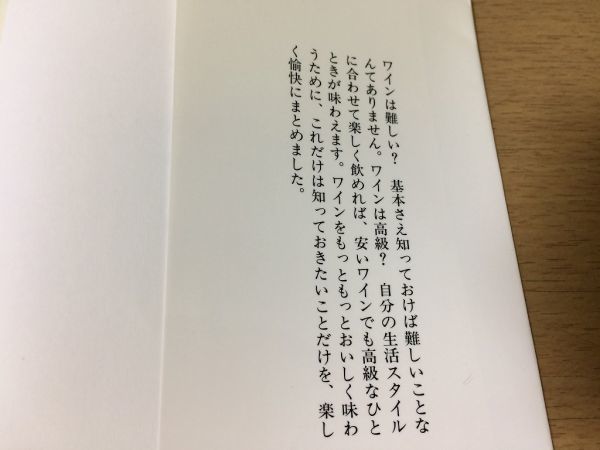 ワインは難しい？　基本さえ知っておけば難しいことな
んてありません。ワインは高級？　自分の生活スタイル
に合わせて楽しく飲めれば、安いワインでも高級なひと
ときが味わえます。ワインをもっともっとおいしく味わ
うために、これだけは知っておきたいことだけを、楽し
く愉快にまとめました。